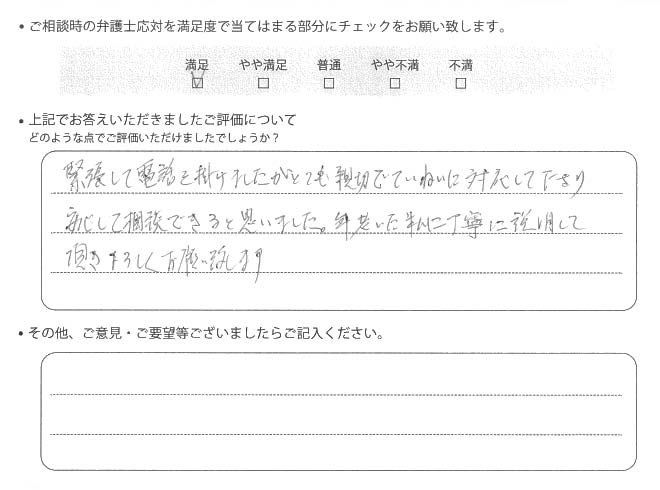 • ご相談時の弁護士応対を満足度で当てはまる部分にチェックをお願い致します。
満足 やや満足 普通 やや不満 不満
☑ □ □ □ □
• 上記でお答えいただきましたご評価について
どのような点でご評価いただけましたでしょうか？
緊張して電話を掛けましたがとても親切でていねいに対応して下さり
安心して相談できると思いました。年老いた私に丁寧に説明して
頂きよろしくお願い致します
• その他、ご意見・ご要望等ございましたらご記入ください。